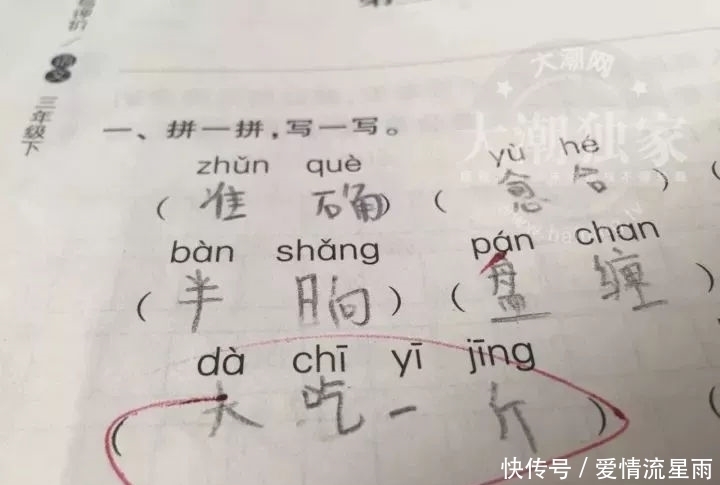 语文 三年级下
大潮网
大潮独家
一、拼一拼,写一写。
zhǔn què yù hé
(准 确) (愈合)
bàn shǎng pán chan
(半 晌) (盘 缠)
dà chī yī jīng
(大吃一斤)
快传号/爱情流星雨